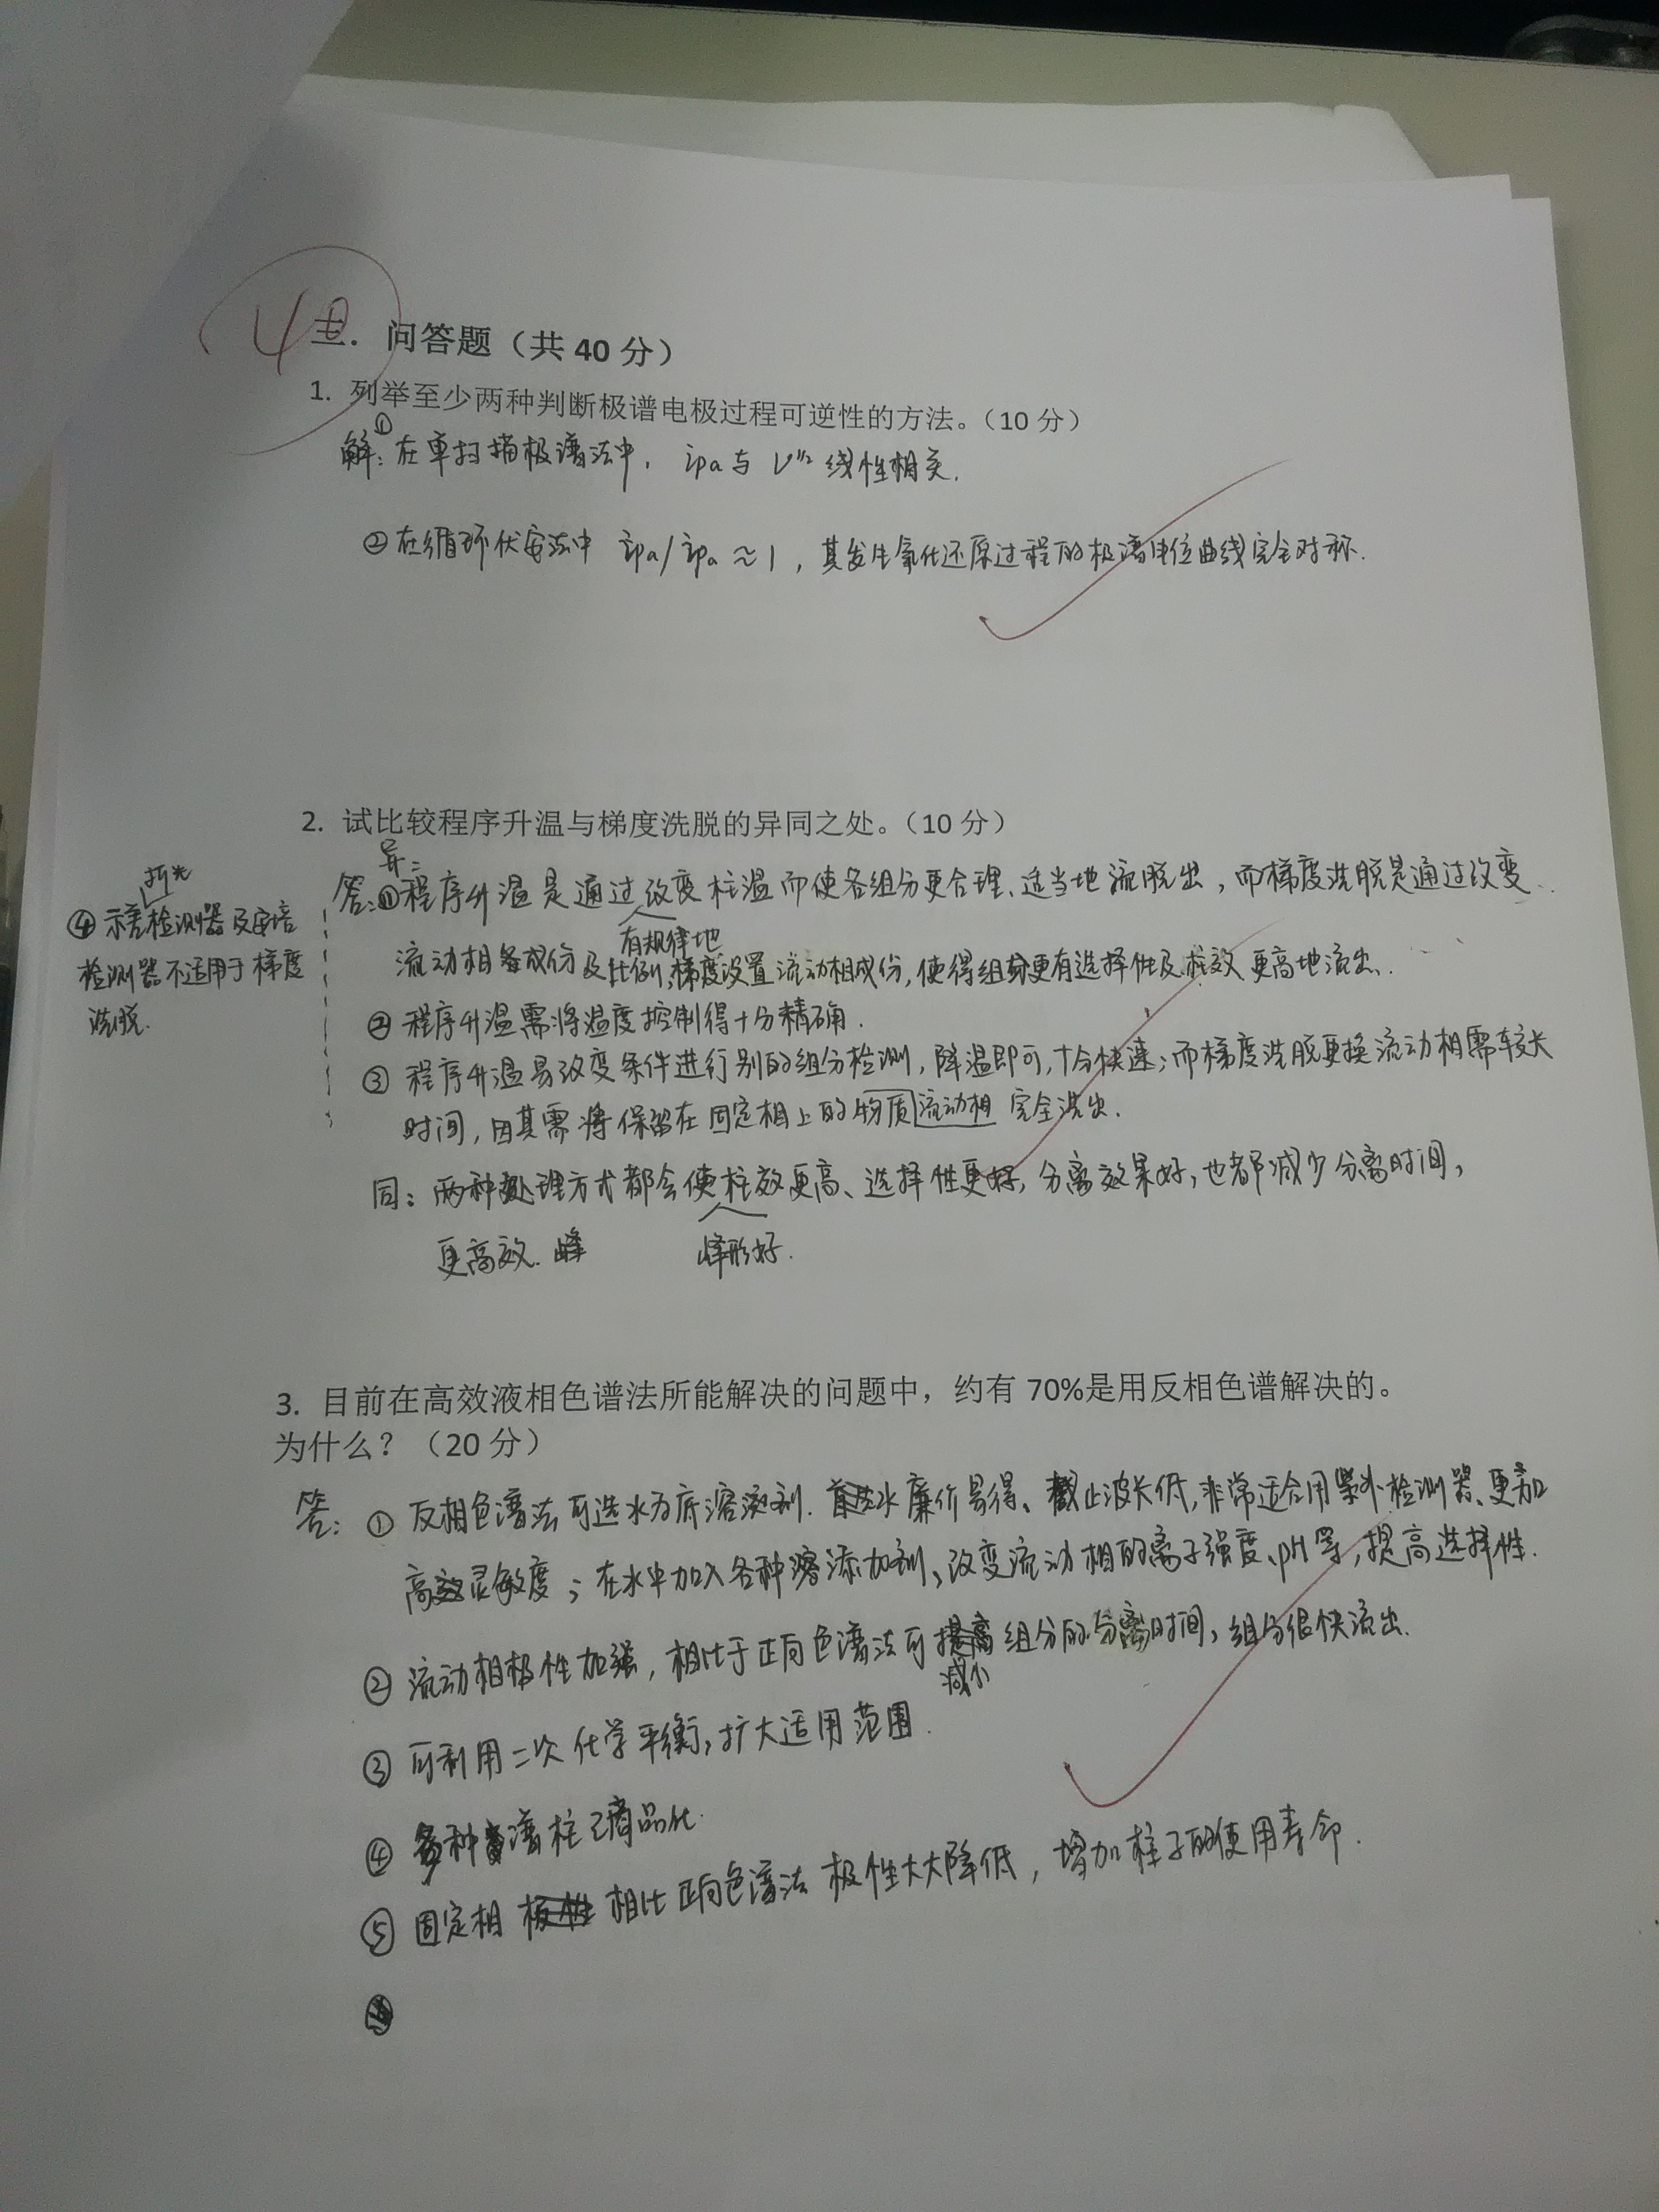 40
三. 问答题（共 40 分）
1. 列举至少两种判断极谱电极过程可逆性的方法。（10 分）
解: ①在单扫描极谱法中， ipa与 V^1/2 线性相关.
②在循环伏安法中 ipa/ipa≈1，其发生氧化还原过程的极谱电位曲线完全对称.
2. 试比较程序升温与梯度洗脱的异同之处。（10 分）
异:
答:①程序升温是通过改变柱温而使各组分更合理、适当地流脱出，而梯度洗脱是通过改变
有规律地
流动相各成份及比例,梯度设置流动相成份,使得组分更有选择性及柱效更高地流出.
②程序升温需将温度控制得十分精确.
③程序升温易改变条件进行别的组分检测，降温即可,十分快速;而梯度洗脱更换流动相需较长
时间，因其需将保留在固定相上的物质流动相完全洗出.
折光
④示差检测器及安培
检测器不适用于梯度
洗脱.
同: 两种处理方式都会使柱效更高、选择性更好,分离效果好,也都减少分离时间,
更高效. 峰 峰形好.
3. 目前在高效液相色谱法所能解决的问题中，约有 70%是用反相色谱解决的。
为什么？（20 分）
答: ①反相色谱法可选水为底溶剂. 水廉价易得、截止波长低,非常适合用紫外检测器、更加
高灵敏度；在水中加入各种添加剂、改变流动相的离子强度、pH等,提高选择性.
②流动相极性加强，相比于正向色谱法可提高组分的分离时间，组分很快流出.
减小
③可利用二次化学平衡,扩大适用范围.
④多种色谱柱已商品化.
⑤固定相 极性 相比正向色谱法极性大大降低，增加柱子的使用寿命.